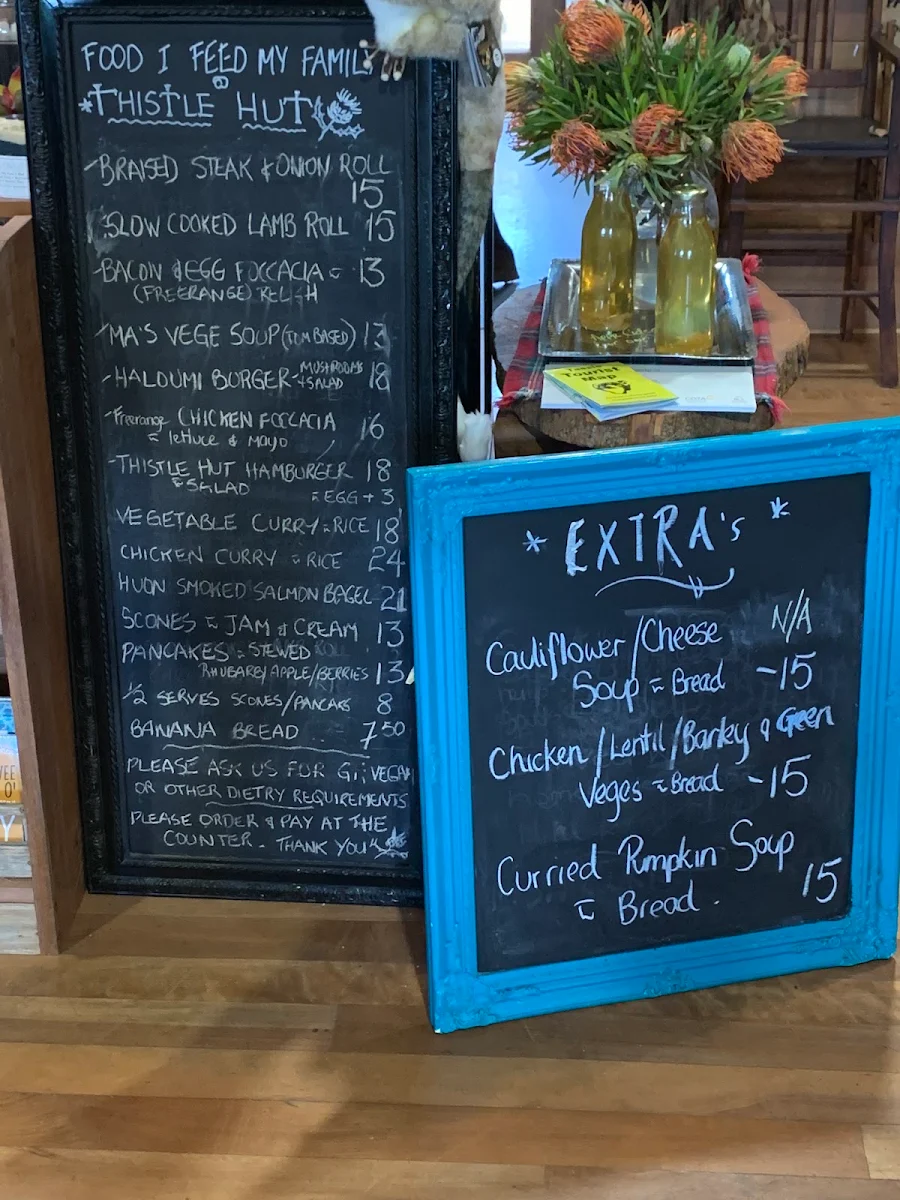 FOOD I FEED MY FAMILY
*THISTLE HUT
-BRAISED STEAK & ONION ROLL
15
SLOW COOKED LAMB ROLL 15
-BACON & EGG FOCCACIA c 13
(FREERANGE) RELISH
-MA'S VEGE SOUP (TOM BASED) 13
-HALOUMI BURGER-MUSHROOMS 18
+SALAD
-Freerange CHICKEN FOCCACIA 16
c lettuce & mayo
-THISTLE HUT HAMBURGER 18
& SALAD c EGG + 3
VEGETABLE CURRY c RICE 18
CHICKEN CURRY c RICE 24
HUON SMOKED SALMON BAGEL 21
SCONES c JAM & CREAM 13
PANCAKES c STEWED
RHUBARB/APPLE/BERRIES 13
½ SERVES SCONES/PANCAKS 8
BANANA BREAD 7.50
PLEASE ASK US FOR GF, VEGAN
OR OTHER DIETRY REQUIREMENTS
PLEASE ORDER & PAY AT THE
COUNTER. THANK YOU
Tourist
Map
* EXTRA's *
Cauliflower/Cheese N/A
Soup c Bread -15
Chicken/Lentil/Barley & Green
Veges c Bread -15
Curried Pumpkin Soup
c Bread. 15